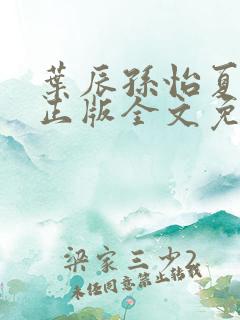 叶辰孙怡夏
正版全文免
梁家三少2
未经同意禁止转载